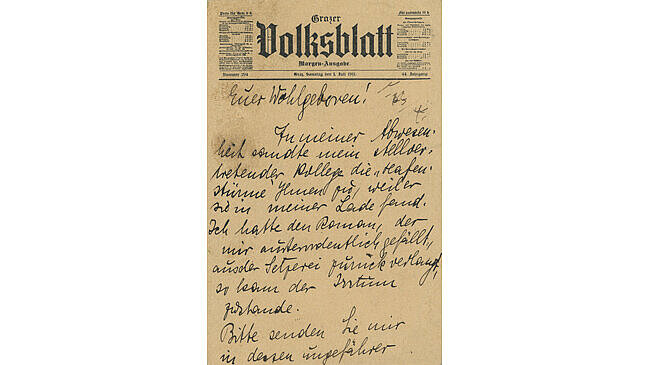 Grazer
Volksblatt
Morgen-Ausgabe.
Nummer 294
Graz, Samstag den 3. Juli 1915.
44. Jahrgang
Euer Wohlgeboren!
In meiner Abwesen-
heit sandte mein stellver-
tretender Kollege die „Hafen-
stürme" Ihnen zu, weil er
sie in meiner Lade fand.
Ich hatte den Roman, der
mir außerordentlich gefällt,
aus der Setzerei zurückverlangt,
so kam der Irrtum
zustande.
Bitte senden Sie mir
in dessen ungefährer